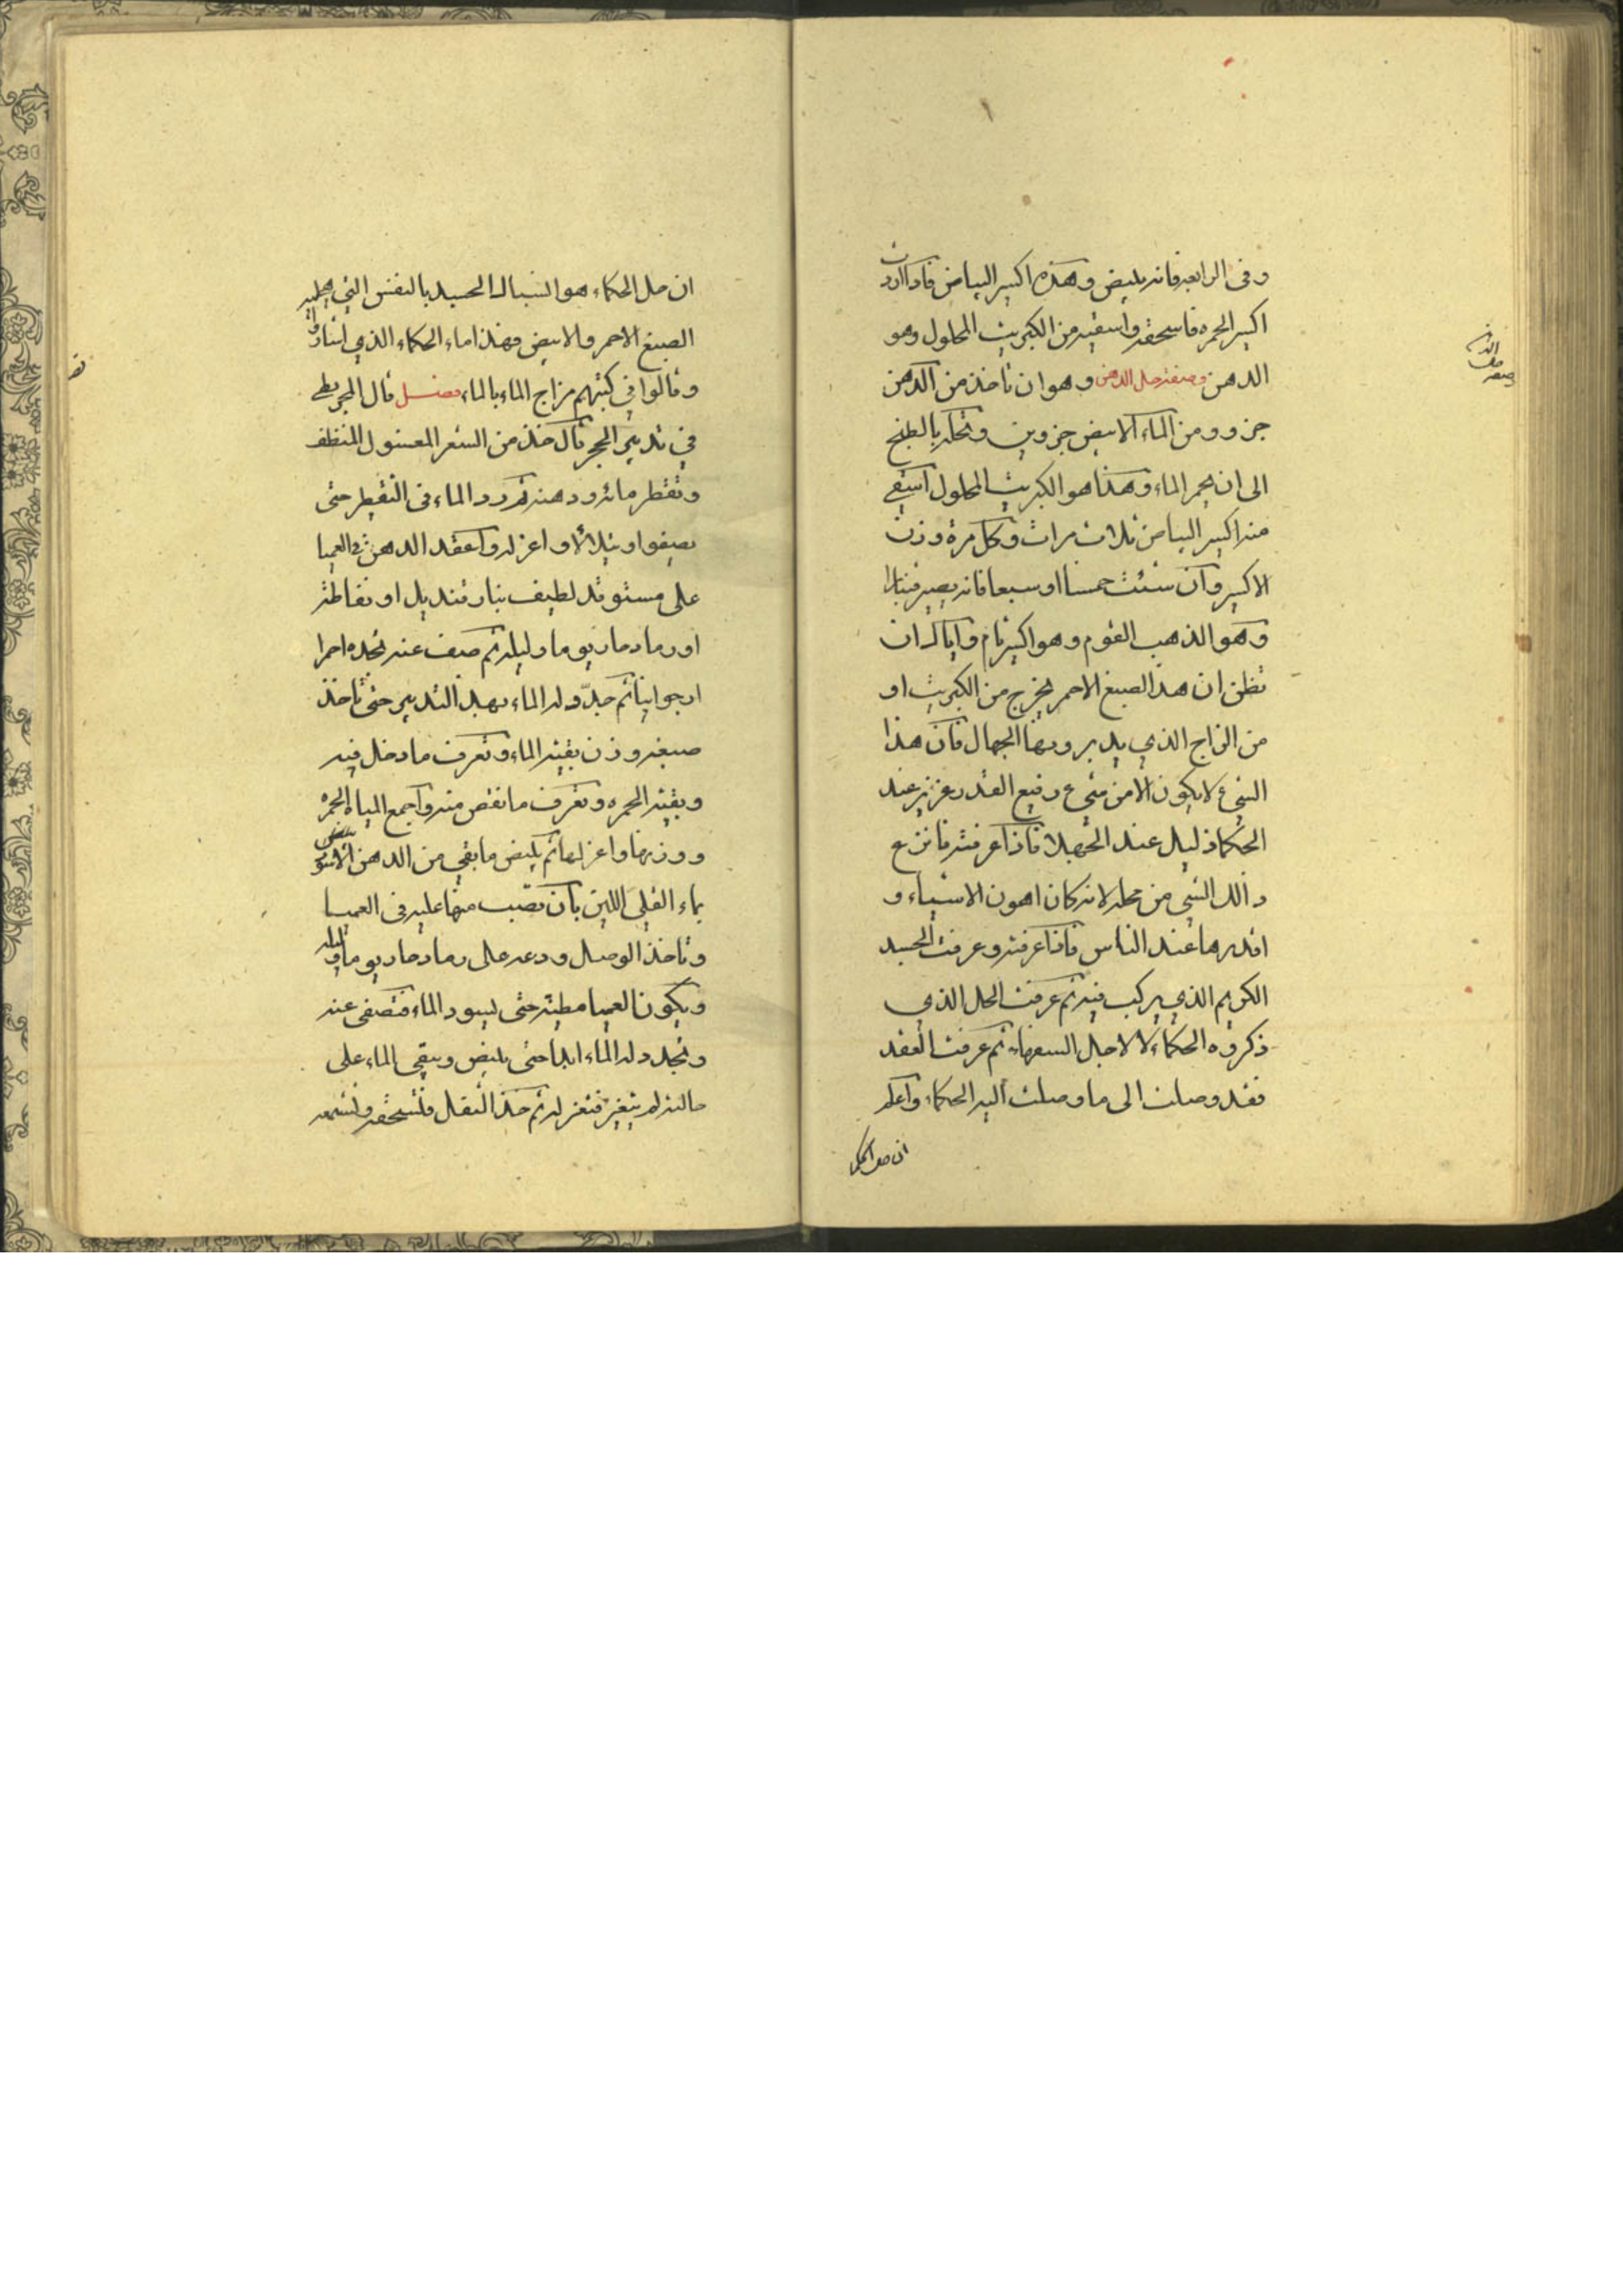 وفى الرابعه فانه يبيض وهذه اكسير البياض فاذا اردت
اكسير الحمره فاسحقه واسقيه من الكبريت المحلول وهو
الدهن وصفة حل الدهن وهو ان تاخذ من الدهن
جزو ومن الماء الابيض جزوين وتحله بالطبخ
الى ان يحمر الماء وهذا هو الكبريت المحلول اسقي
منه اكسير البياض ثلاث مرات وكل مرة وزن
الاكسير وان شئت خمسا او سبعا فانه يصير
وهو الذهب القوم وهو اكسير تام واياك ان
تظن ان هذا الصبغ الاحمر يخرج من الكبريت او
من الزاج الذي يدبرونها الجهال فان هذا
الشيء لا يكون الا من شيء رفيع القدر عزيز عند
الحكما ذليل عند الجهلا فاذا عرفته فانزع
ذالك الشي من محله لانه كان اهون الاشياء و
اقدرها عند الناس فاذا عرفته وعرفت الجسد
الكريم الذي يركب فيه ثم عرفت الحل الذي
ذكروه الحكماء لا لاجل السفهاء ثم عرفت العقد
فقد وصلت الى ما وصلت اليه الحكماء واعلم
ان حل الحكما
صفة حل الدهن
ان حل الحكماء هو انسبال الجسد بالنفس التي يظهر
الصبغ الاحمر والابيض فهذا ماء الحكماء الذي اشاروا
وقالوا في كتبهم مزاج الماء بالماء فصل قال المجريطي
في تدبير الحجر قال خذ من الشعر المغسول المنظف
وتقطر مائه ودهنه ثم رد الماء فى التقطير حتى
يصفوا ويتلألأ واعزله واعقد الدهن في العميا
على مستوقد لطيف بنار قنديل او نفاطة
او رماد حار يوما وليلة ثم صف عنه تجده احمرا
ارجوانيا ثم جدّد له الماء بهذا التدبير حتى تاخذ
صبغه وزن بقية الماء وتعرف ما دخل فيه
وبقية الحمره وتعرف ما نقص منه واجمع المياه المحمرة
ووزنها واعزلها ثم يبيض ما بقي من الدهن الاسود
بماء القلي اللين بان تصب منها عليه فى العميا
وتاخذ الوصل ودعه على رماد حار يوما وليلة
ويكون العميا مطينة حتى يسود الماء فتصفى عنه
وتجدد له الماء ابدا حتى يبيض ويبقى الماء على
حالته لم يتغير فتعزله ثم خذ الثقل فتسحقه وتشمعه